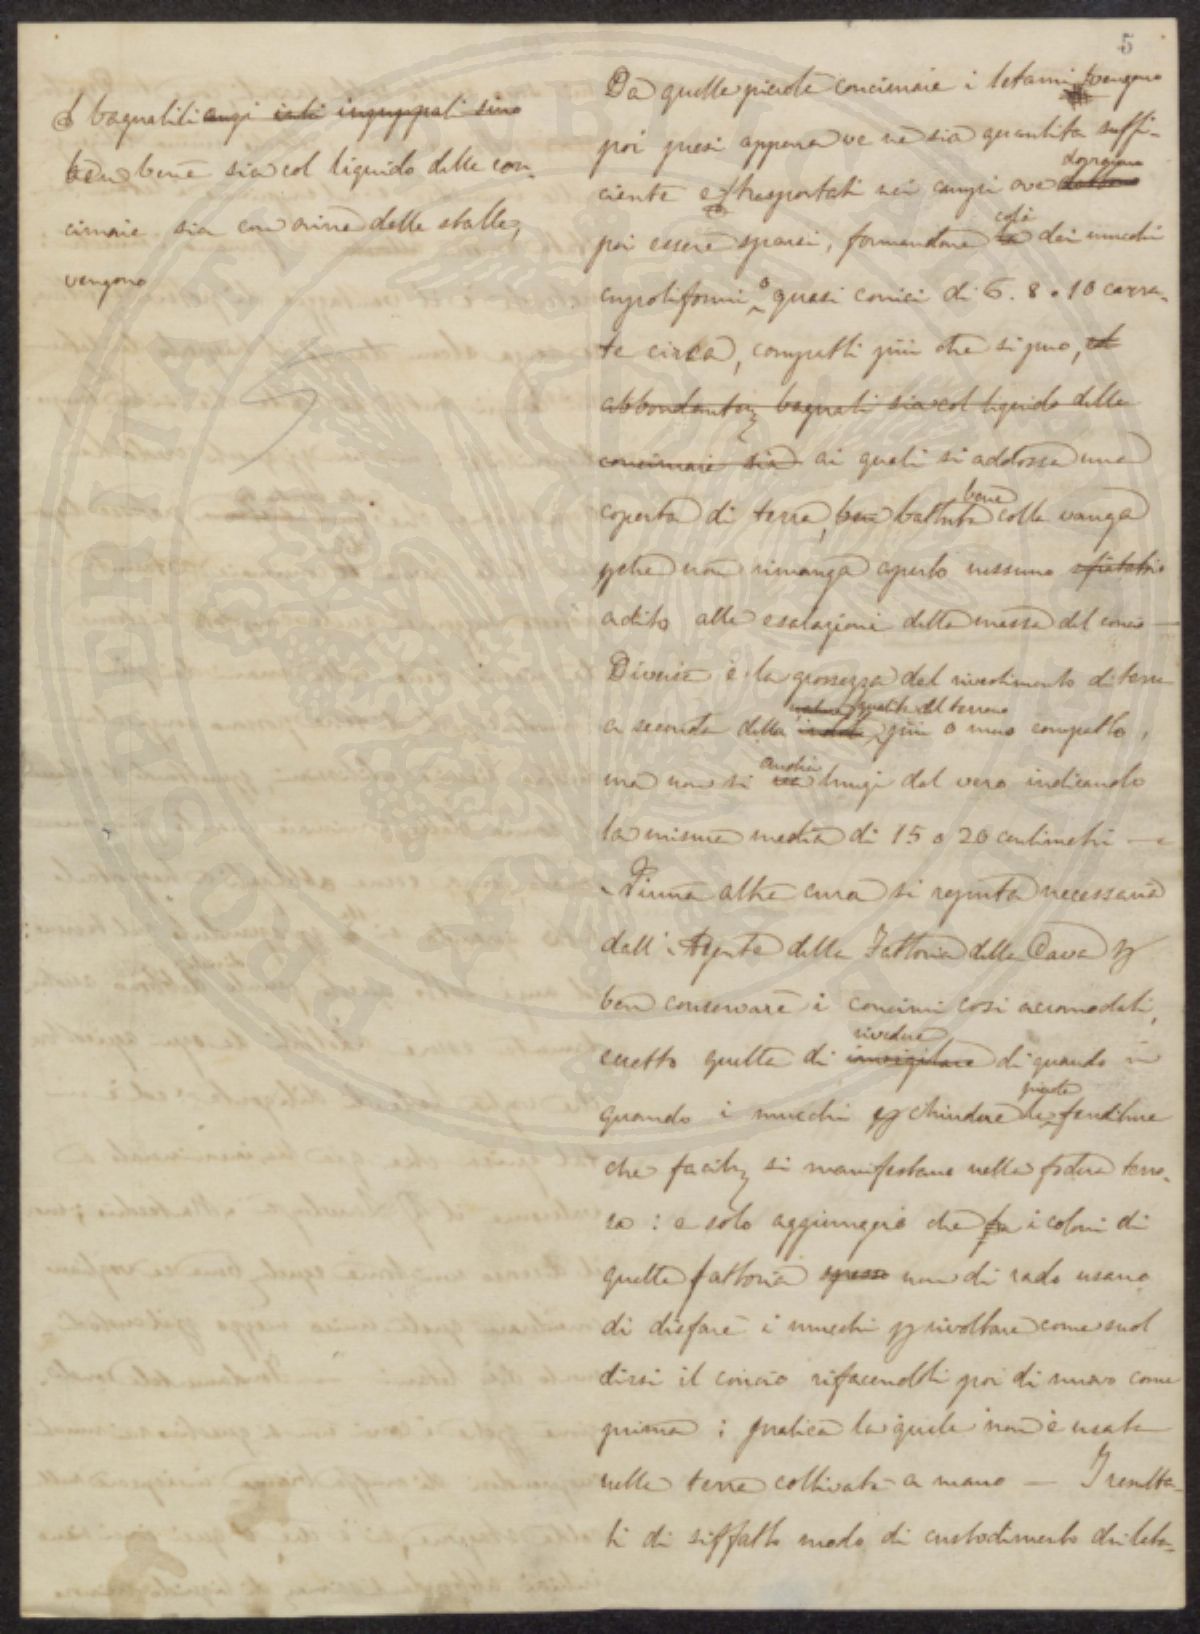 5
e bagnatili anzi isti inzuppati sino
ben bene sia col liquido delle con-
cimaie sia con orine delle stalle,
vengono
Da quelle piccole concimaie i letami vengono
poi presi appena ve ne sia quantità suffi-
ciente e trasportati nei campi ove dovranno
poi essere sparsi, formandone colà dei mucchi
cupoliformi o quasi conici di 6. 8. 10 carra-
te circa, compatti più che si può, ed
abbondantem bagnati sia col liquido delle
concimaie sia ai quali si addossa una
coperta di terra, ben battuta bene colla vanga
perché non rimanga aperto nessuno sfiatatoio
adito alle esalazioni della massa del concio —
Diversa è la grossezza del rivestimento di terra
a seconda della indole natura qualità del terreno più o meno compatto,
ma non si andrà lungi dal vero indicando
la misura media di 15 o 20 centimetri —
Niuna altra cura si reputa necessaria
dall'Agente della Fattoria della Cava per
ben conservare i concimi così accomodati,
eccetto quella di invigilare rivedere di quando in
quando i mucchi per chiudere le piccole fenditure
che facilm si manifestano nella fodera terro-
sa: e solo aggiungerò che fra i coloni di
quella fattoria spesso non di rado usano
di disfare i mucchi per rivoltare come suol
dirsi il concio rifacendoli poi di nuovo come
prima: pratica la quale non è usata
nelle terre coltivate a mano — I resulta-
ti di siffatto modo di custodimento dei leta-